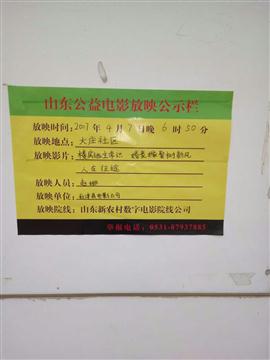 山东公益电影放映公示栏
放映时间：2017年4月7日晚6时50分
放映地点：大庄社区
放映影片：
人在征途
放映人员：赵
放映单位：电影公司
放映院线：山东新农村数字电影院线公司
举报电话：0531-87937885